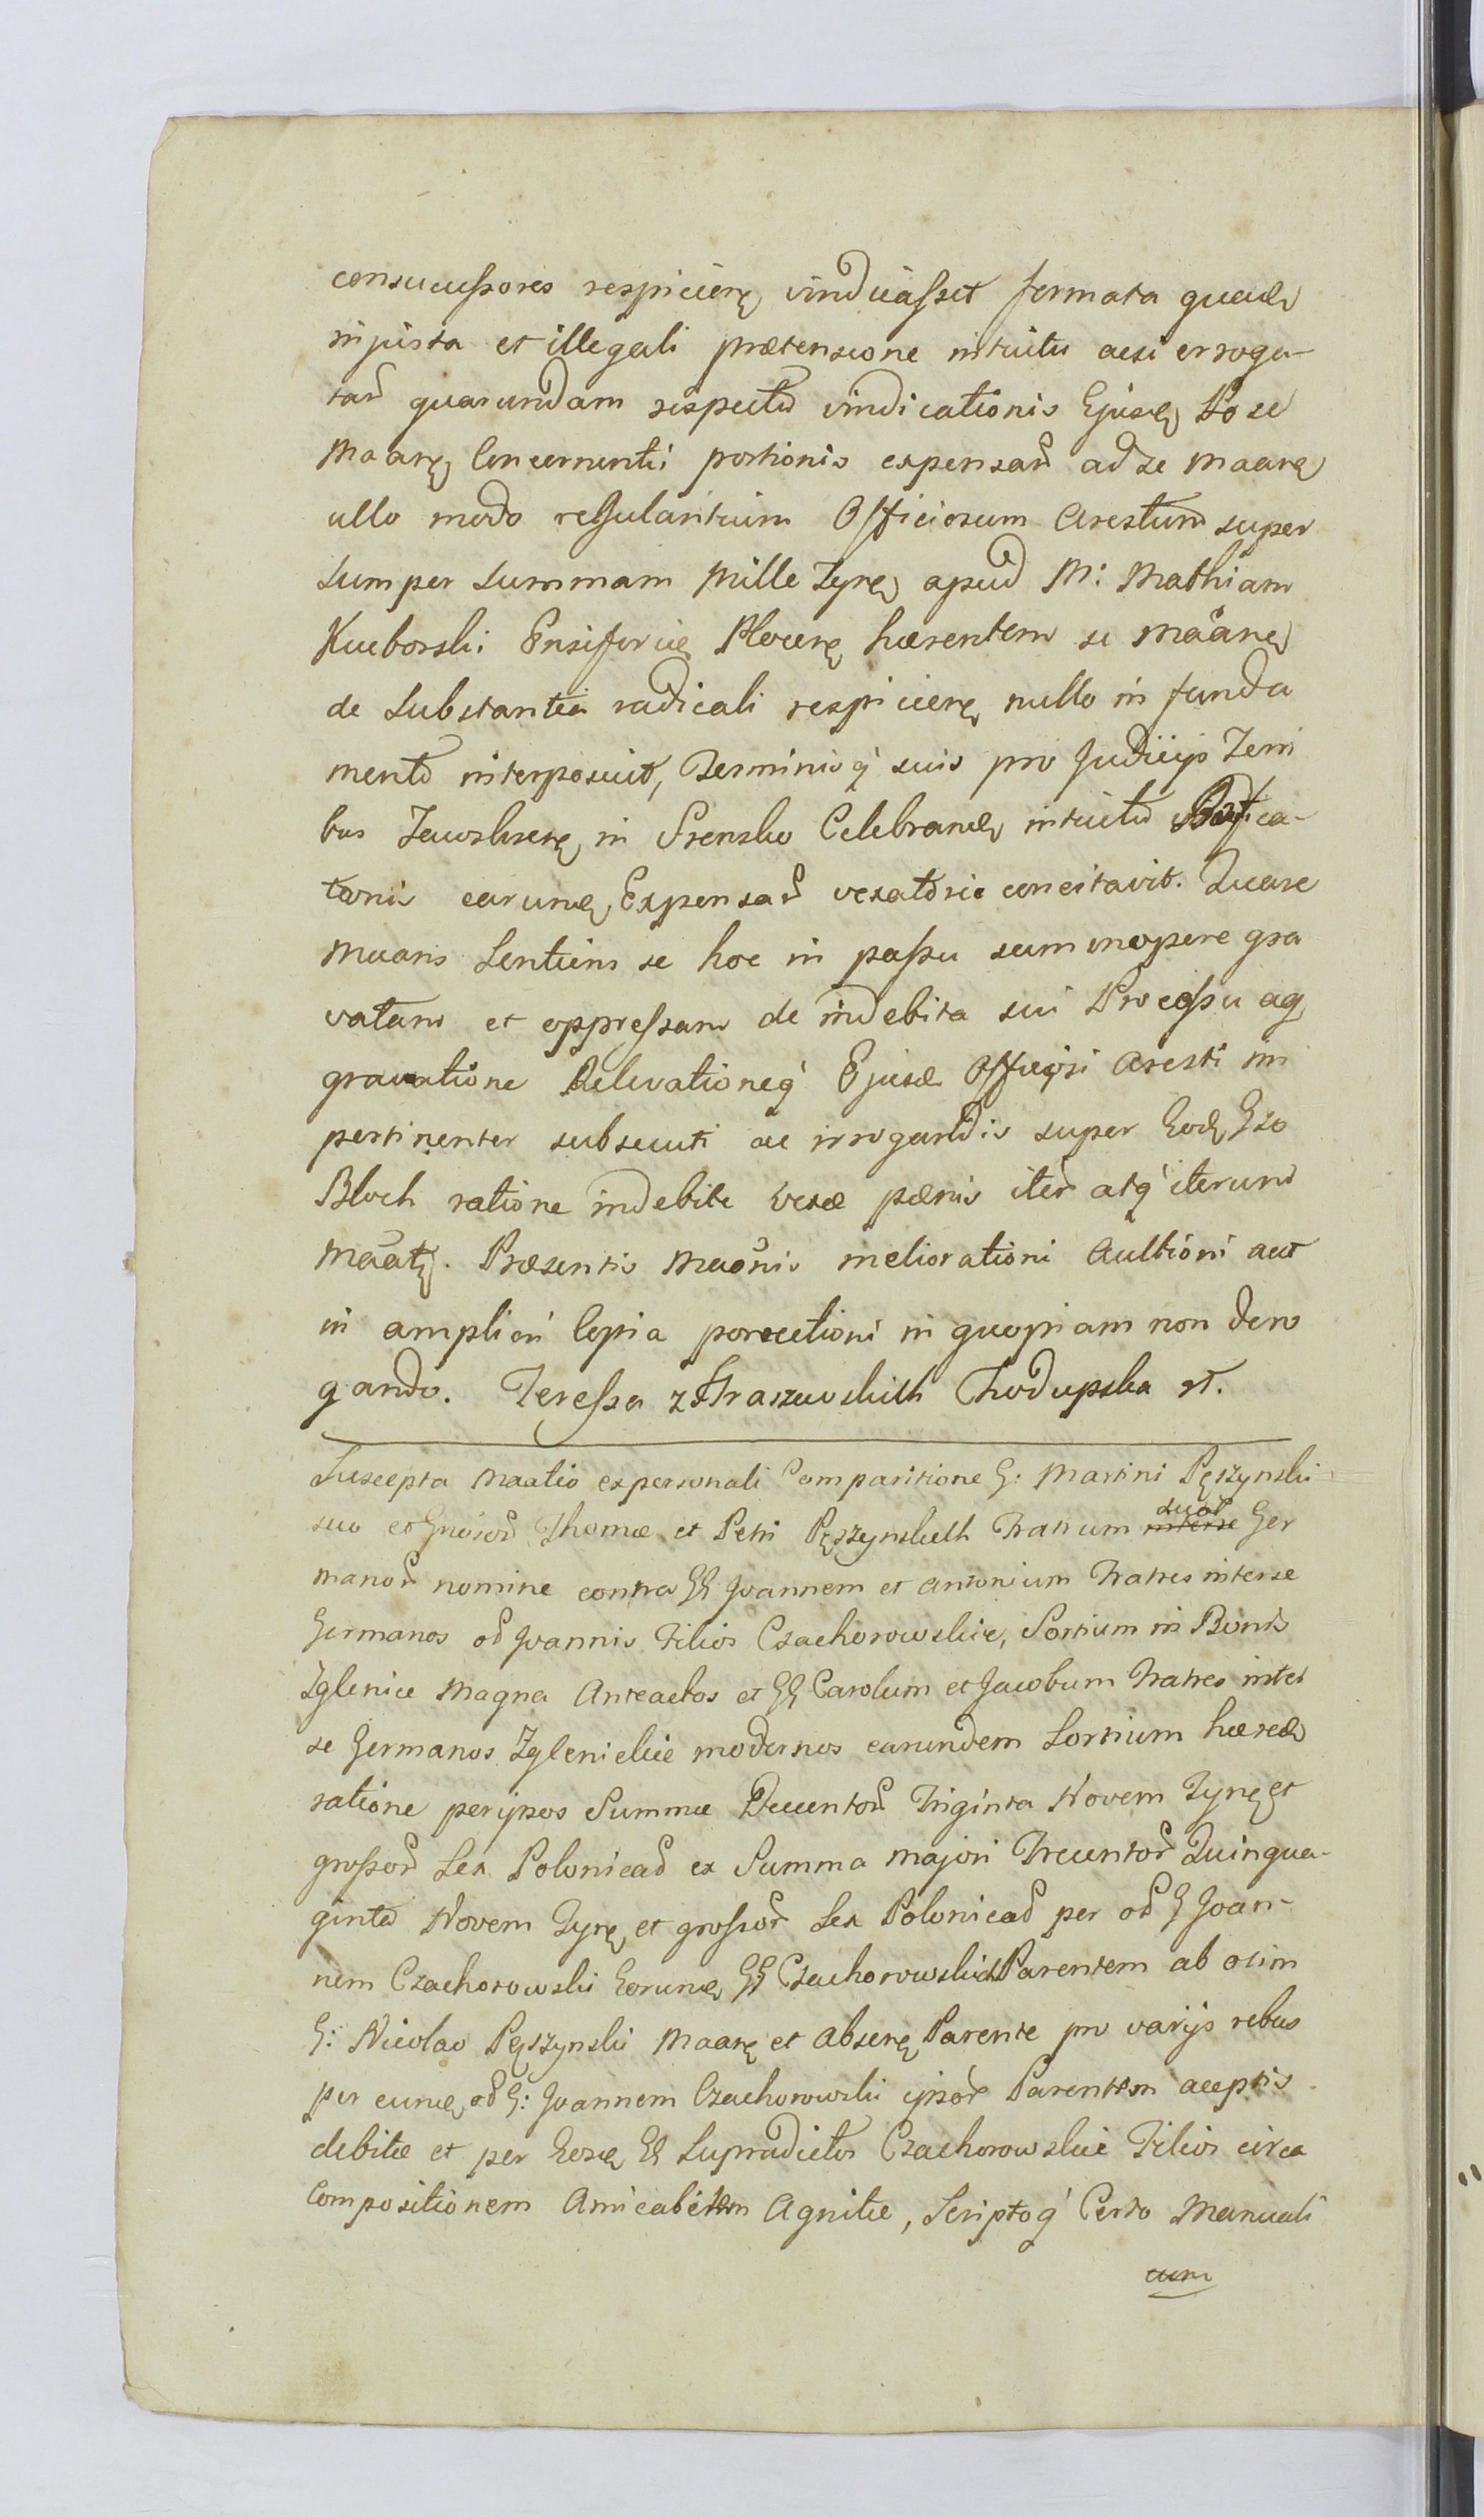 consucessores respicieñ vindicasset formata quadam
injusta et illegali prætensione intuitu acsi erroga-
tar̃ quarundam respectu vindicationis Ejusd Po se
Maanẽ Concernenti portionis expensar̃ ad se maanẽ
ullo modo regulantium Officiosum Arestum super
sumper summam Mille Tynf apud M: Mathiam
Kueborski Ensiferũ Plocen hærentem se Maanẽ
de substantia radicali respicieñ nullo in funda
mento interposuit, Terminisq suis pro Judicijs Terri
bus Zawskrzeñ in Srensko Celebrand intuitu
tionis earund Expensar̃ vexatorie concitavit. Quare
Maans Sentiens se hoc in passu summopere gra
vatam et oppressam de indebita sui Processu ag
gravatione Relevationeq Ejusd Officiosi Aresti im
pertinenter subsecuti ac irrogandis super Eod Gso
Bloch ratione indebite Vexæ pænis iter̃ atq iterum
Maat. Præsentis Maõnis meliorationi Auctioni aut
in ampliori Copia porrectioni in quopiam non dero
gando. Teressa z Straszewskich Chodupska st.
Suscepta Maatio ex personali Comparitione G: Martini Pęszynski
suo et Gnosor̃ Thomæ et Petri Pęszynskich Fratrum suor̃ interse Ger
manor̃ nomine contra GG Joannem et Antonium Fratres inter se
Germanos od Joannis Filios Czachorowskie, Sortium in Bonis
Zglenice Magna Anteactos et GG Carolum et Jacobum Fratres inter
se Germanos Zglenickie modernos earundem Sortium hæred
ratione per ipsos Summæ Ducentor̃ Triginta Novem Tynf et
grossor̃ Sex Polonicar̃ ex Summa majori Trecentor̃ Quinqua-
ginta Novem Tynf et grossor̃ Sex Polonicar̃ per od G Joan-
nem Czachorowski Eorund GG Czachorowskich Parentem ab olim
G: Nicolao Pęszynski Maanẽ et Absenẽ Parente pro varijs rebus
per eund od G: Joannem Czachorowski ipsor̃ Parentem acceptis
debitæ et per Eosd GG Supradictos Czachorowskie Filios circa
Compositionem Amicabilem Agnitæ, Scriptoq Certo Manuali
cum